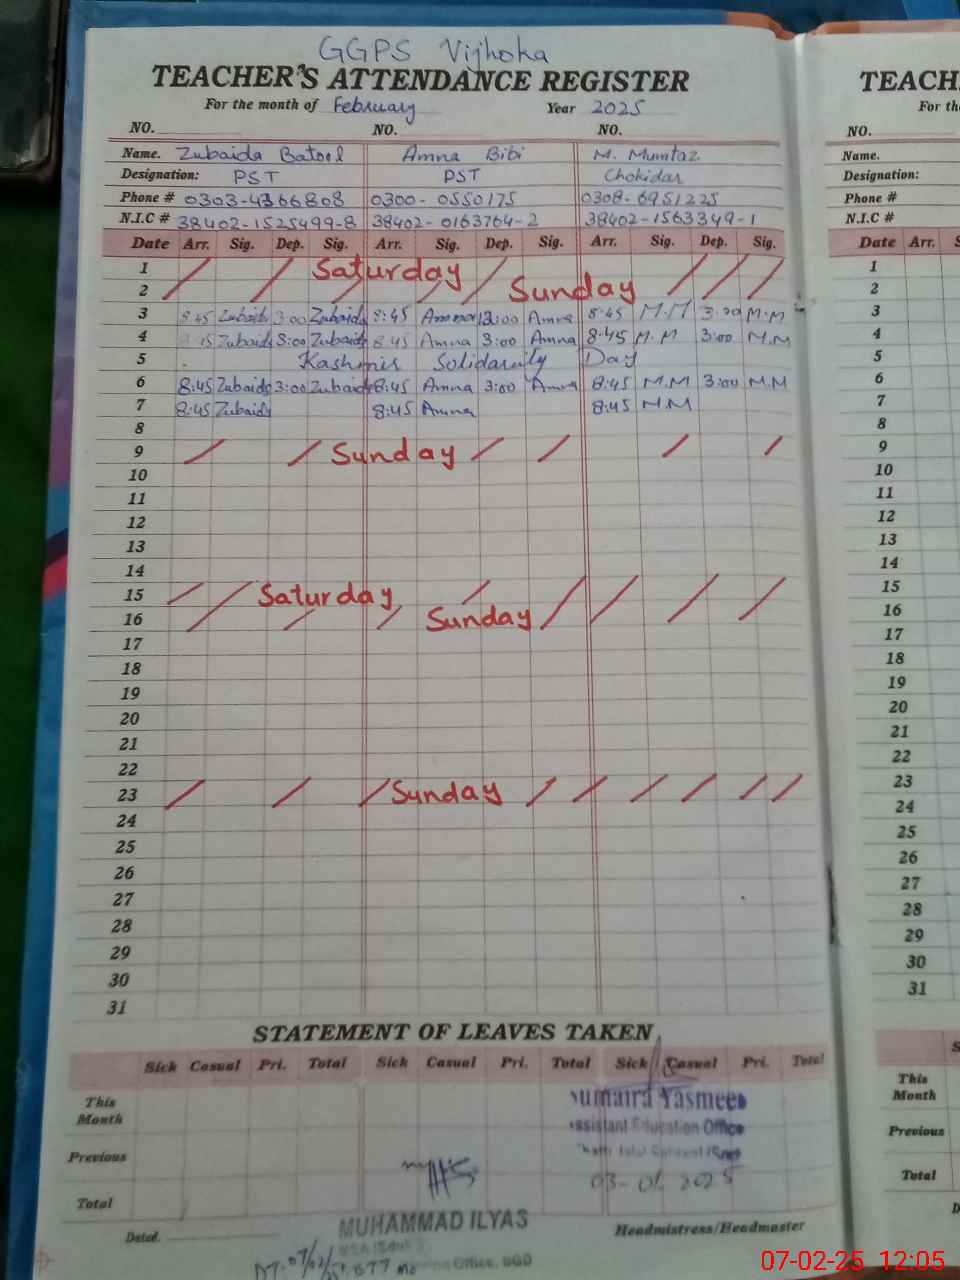 GGPS Vijhoka
TEACHER'S ATTENDANCE REGISTER
For the month of February Year 2025
NO. NO. NO.
Name. Zubaida Batool Amna Bibi M. Mumtaz
Designation: PST PST Chokidar
Phone # 0303-4366808 0300-0550175 0308-6951225
N.I.C # 38402-1525499-8 38402-0163764-2 38402-1563349-1
Date Arr. Sig. Dep. Sig. Arr. Sig. Dep. Sig. Arr. Sig. Dep. Sig.
1 Saturday
2 Sunday
3 8:45 Zubaida 3:00 Zubaida 8:45 Amna 3:00 Amna 8:45 M.M 3:00 M.M
4 Zubaida 3:00 Zubaida 8:45 Amna 3:00 Amna 8:45 M.M 3:00 M.M
5 Kashmir Solidarity Day
6 8:45 Zubaida 3:00 Zubaida 8:45 Amna 3:00 Amna 8:45 M.M 3:00 M.M
7 8:45 Zubaida 8:45 Amna 8:45 M.M
8
9 Sunday
10
11
12
13
14
15 Saturday
16 Sunday
17
18
19
20
21
22
23 Sunday
24
25
26
27
28
29
30
31
STATEMENT OF LEAVES TAKEN
Sick Casual Pri. Total Sick Casual Pri. Total Sick Casual Pri. Total
This Month
Previous
Total
Sumaira Yasmeen
Assistant Education Office
03-02-2025
MUHAMMAD ILYAS
Dated. Headmistress/Headmaster
DT: 07/02/
Office, SGD
TEACH
For the
NO.
Name.
Designation:
Phone #
N.I.C #
Date Arr. S
1
2
3
4
5
6
7
8
9
10
11
12
13
14
15
16
17
18
19
20
21
22
23
24
25
26
27
28
29
30
31
S
This Month
Previous
Total
D
07-02-25 12:05